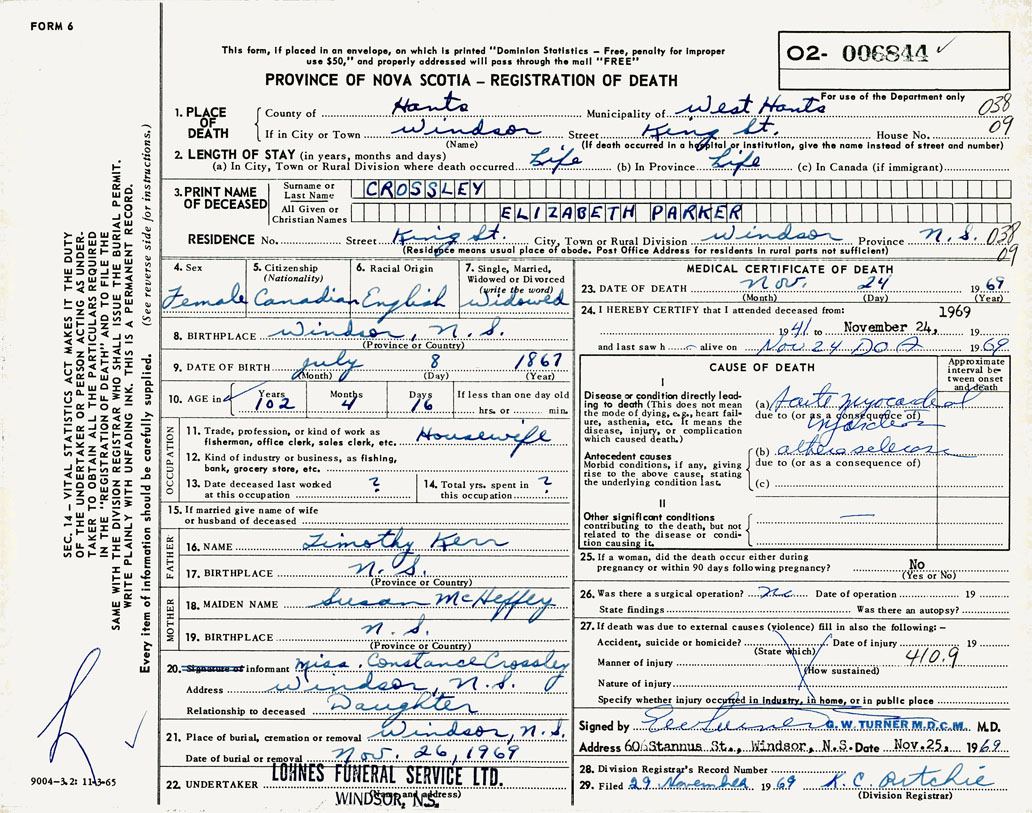 FORM 6
This form, if placed in an envelope, on which is printed "Dominion Statistics – Free, penalty for improper
use $50," and properly addressed will pass through the mail "FREE"
PROVINCE OF NOVA SCOTIA – REGISTRATION OF DEATH
02- 006844
For use of the Department only
038
09
1. PLACE OF DEATH
County of Hants Municipality of West Hants
If in City or Town Windsor Street King St. House No.
(Name) (If death occurred in a hospital or institution, give the name instead of street and number)
2. LENGTH OF STAY (in years, months and days)
(a) In City, Town or Rural Division where death occurred Life (b) In Province Life (c) In Canada (if immigrant)
3. PRINT NAME OF DECEASED
Surname or Last Name CROSSLEY
All Given or Christian Names ELIZABETH PARKER
RESIDENCE No. Street King St. City, Town or Rural Division Windsor Province N.S. 038
09
(Residence means usual place of abode. Post Office Address for residents in rural parts not sufficient)
4. Sex
Female
5. Citizenship
(Nationality)
Canadian
6. Racial Origin
English
7. Single, Married,
Widowed or Divorced
(write the word)
Widowed
8. BIRTHPLACE Windsor, N.S.
(Province or Country)
9. DATE OF BIRTH July 8 1867
(Month) (Day) (Year)
10. AGE in Years Months Days If less than one day old
102 4 16 hrs. or min.
OCCUPATION
11. Trade, profession, or kind of work as
fisherman, office clerk, sales clerk, etc. Housewife
12. Kind of industry or business, as fishing,
bank, grocery store, etc.
13. Date deceased last worked
at this occupation ?
14. Total yrs. spent in
this occupation ?
15. If married give name of wife
or husband of deceased
FATHER
16. NAME Timothy Kerr
17. BIRTHPLACE N.S.
(Province or Country)
MOTHER
18. MAIDEN NAME Susan McHeffey
19. BIRTHPLACE N.S.
(Province or Country)
20. Signature of informant Miss. Constance Crossley
Address Windsor, N.S.
Relationship to deceased Daughter
21. Place of burial, cremation or removal Windsor, N.S.
Date of burial or removal Nov. 26, 1969
22. UNDERTAKER LOHNES FUNERAL SERVICE LTD.
(Name and address)
WINDSOR, N.S.
MEDICAL CERTIFICATE OF DEATH
23. DATE OF DEATH Nov. 24 1969
(Month) (Day) (Year)
24. I HEREBY CERTIFY that I attended deceased from: 1969
1941 to November 24, 19
and last saw h alive on Nov 24 DOA 1969
CAUSE OF DEATH
Approximate
interval be-
tween onset
and death
I
Disease or condition directly lead-
ing to death (This does not mean
the mode of dying, e.g., heart fail-
ure, asthenia, etc. It means the
disease, injury, or complication
which caused death.)
(a) Acute myocardial
due to (or as a consequence of)
infarction
Antecedent causes
Morbid conditions, if any, giving
rise to the above cause, stating
the underlying condition last.
(b)
due to (or as a consequence of)
(c)
II
Other significant conditions
contributing to the death, but not
related to the disease or condi-
tion causing it.
25. If a woman, did the death occur either during
pregnancy or within 90 days following pregnancy? No
(Yes or No)
26. Was there a surgical operation? No Date of operation 19
State findings Was there an autopsy?
27. If death was due to external causes (violence) fill in also the following: –
Accident, suicide or homicide? Date of injury 19
(State which)
Manner of injury 410.9
(How sustained)
Nature of injury
Specify whether injury occurred in industry, in home, or in public place
Signed by G.W. TURNER M.D.C.M. M.D.
Address 60 Stannus St., Windsor, N.S. Date Nov. 25, 1969
28. Division Registrar's Record Number
29. Filed 29 November 1969 K. C. Ritchie
(Division Registrar)
SEC. 14 – VITAL STATISTICS ACT MAKES IT THE DUTY
OF THE UNDERTAKER OR PERSON ACTING AS UNDER-
TAKER TO OBTAIN ALL THE PARTICULARS REQUIRED
IN THE "REGISTRATION OF DEATH" AND TO FILE THE
SAME WITH THE DIVISION REGISTRAR WHO SHALL ISSUE THE BURIAL PERMIT.
WRITE PLAINLY WITH UNFADING INK. THIS IS A PERMANENT RECORD.
Every item of information should be carefully supplied. (See reverse side for instructions.)
9004–3.2: 11-3-65